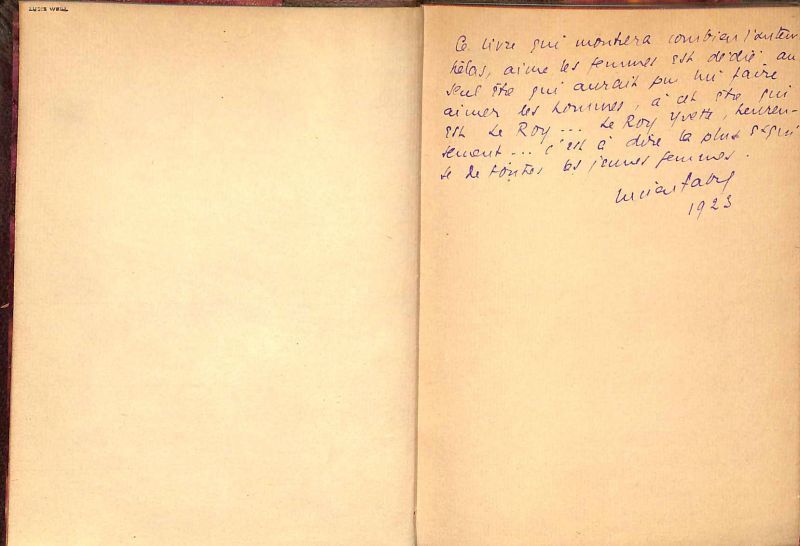 LUCIE WEILL
Ce livre qui montrera combien l'auteur
hélas, aime les femmes est dédié au
seul être qui aurait pu lui faire
aimer les hommes, à cet être qui
est Le Roy... Le Roy Yvette, heureu-
sement... c'est à dire la plus exqui
se de toutes les jeunes femmes.
Lucien Fabre
1923